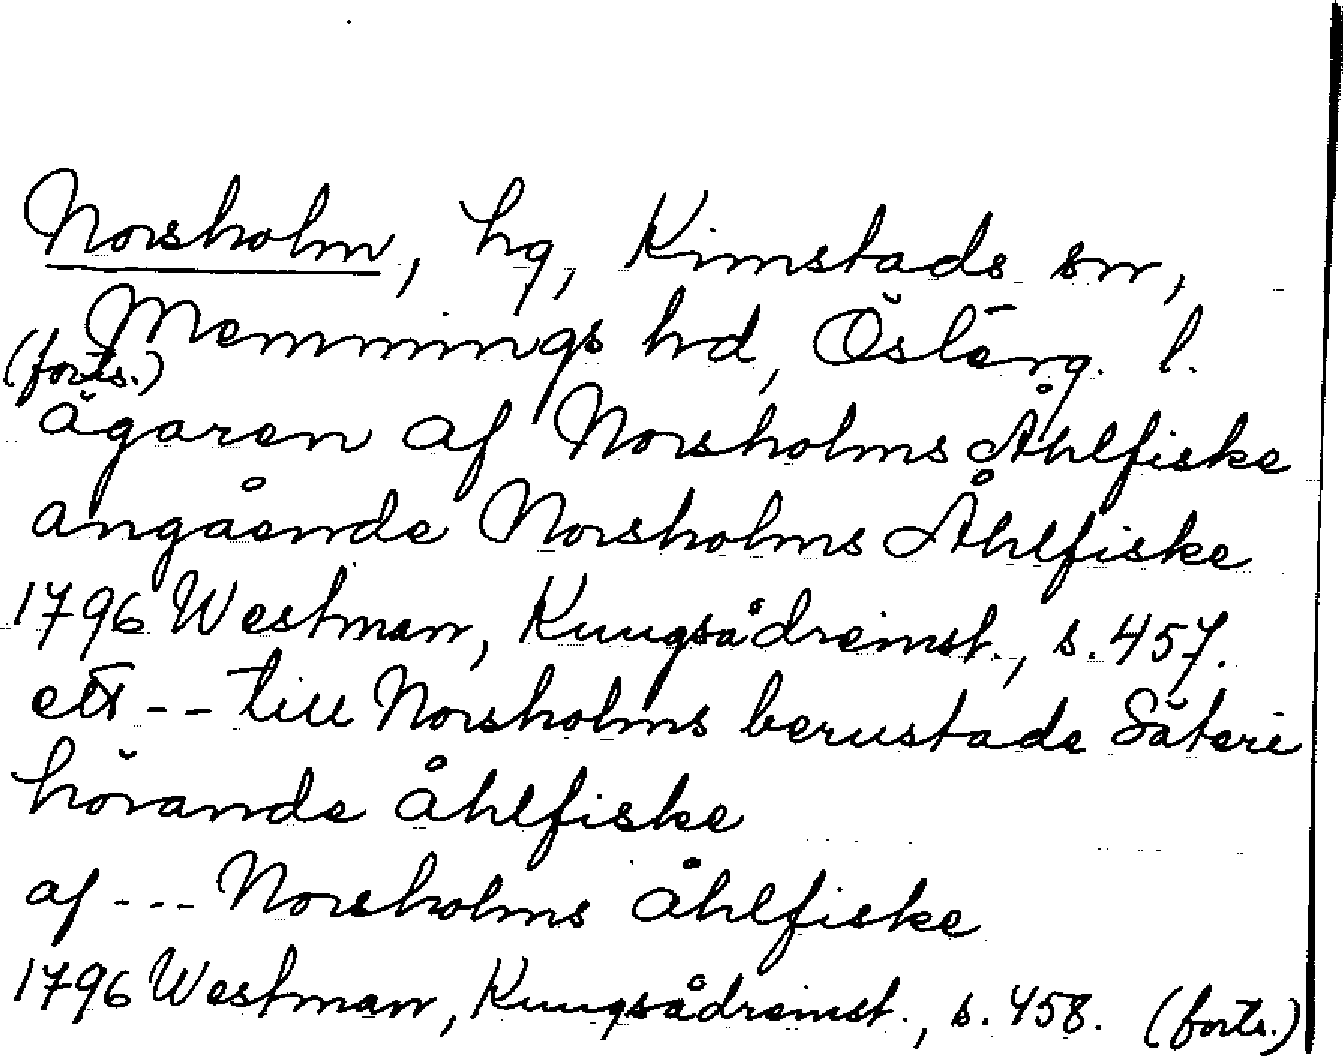 Norsholm, hg, Kimstads sn,
Memmings hd, Österg. l.
(forts.)
ägaren af Norsholms Åhlfiske
angående Norsholms Åhlfiske
1796 Westman, Kungsådreinst., s. 457.
ett -- till Norsholms berustade Säteri
hörande åhlfiske
af --- Norsholms åhlfiske
1796 Westman, Kungsådreinst., s. 458. (forts.)